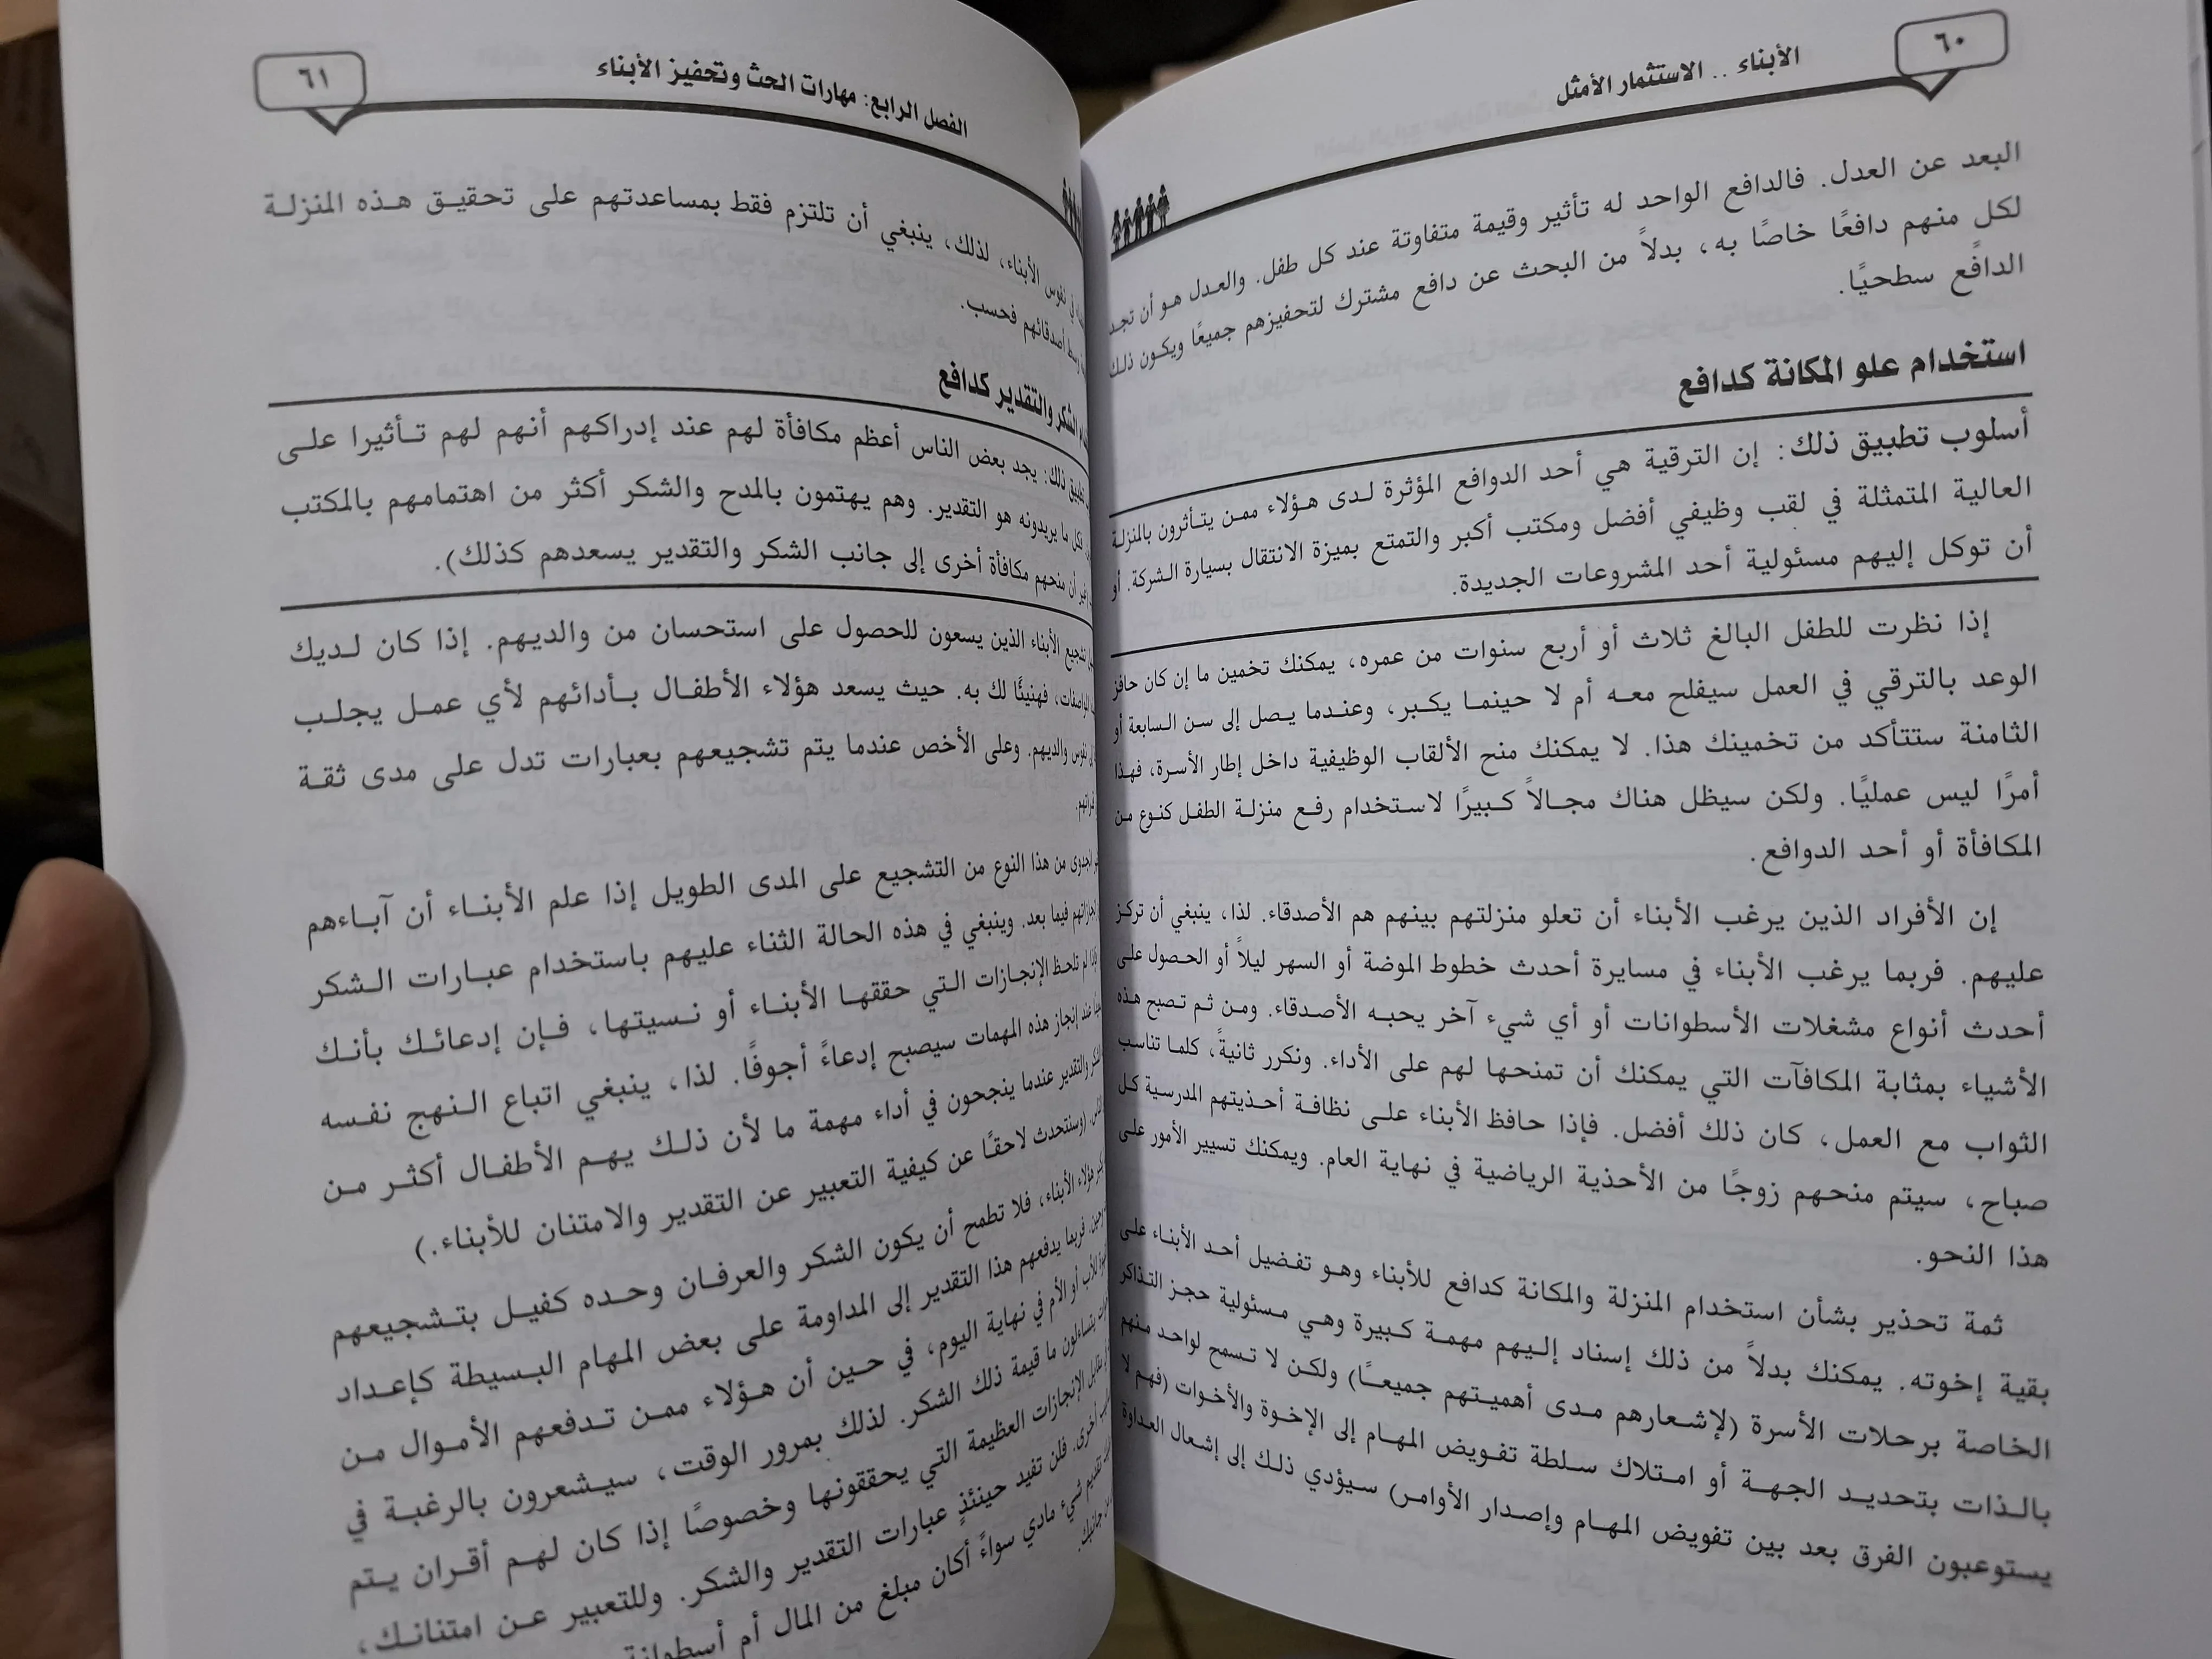 ٦٠
الأبناء .. الاستثمار الأمثل
البعد عن العدل. فالدافع الواحد له تأثير وقيمة متفاوتة عند كل طفل. والعدل هو أن تجد
لكل منهم دافعًا خاصًا به، بدلاً من البحث عن دافع مشترك لتحفيزهم جميعًا ويكون ذلك
الدافع سطحيًا.
استخدام علو المكانة كدافع
أسلوب تطبيق ذلك: إن الترقية هي أحد الدوافع المؤثرة لدى هؤلاء ممن يتأثرون بالمنزلة
العالية المتمثلة في لقب وظيفي أفضل ومكتب أكبر والتمتع بميزة الانتقال بسيارة الشركة. أو
أن توكل إليهم مسئولية أحد المشروعات الجديدة.
إذا نظرت للطفل البالغ ثلاث أو أربع سنوات من عمره، يمكنك تخمين ما إن كان حافز
الوعد بالترقي في العمل سيفلح معه أم لا حينما يكبر، وعندما يصل إلى سن السابعة أو
الثامنة ستتأكد من تخمينك هذا. لا يمكنك منح الألقاب الوظيفية داخل إطار الأسرة، فهذا
أمرًا ليس عمليًا. ولكن سيظل هناك مجالاً كبيرًا لاستخدام رفع منزلة الطفل كنوع من
المكافأة أو أحد الدوافع.
إن الأفراد الذين يرغب الأبناء أن تعلو منزلتهم بينهم هم الأصدقاء. لذا، ينبغي أن تركز
عليهم. فربما يرغب الأبناء في مسايرة أحدث خطوط الموضة أو السهر ليلاً أو الحصول على
أحدث أنواع مشغلات الأسطوانات أو أي شيء آخر يحبه الأصدقاء. ومن ثم تصبح هذه
الأشياء بمثابة المكافآت التي يمكنك أن تمنحها لهم على الأداء. ونكرر ثانيةً، كلما تناسب
الثواب مع العمل، كان ذلك أفضل. فإذا حافظ الأبناء على نظافة أحذيتهم المدرسية كل
صباح، سيتم منحهم زوجًا من الأحذية الرياضية في نهاية العام. ويمكنك تسيير الأمور على
هذا النحو.
ثمة تحذير بشأن استخدام المنزلة والمكانة كدافع للأبناء وهو تفضيل أحد الأبناء على
بقية إخوته. يمكنك بدلاً من ذلك إسناد إليهم مهمة كبيرة وهي مسئولية حجز التذاكر
الخاصة برحلات الأسرة (لإشعارهم مدى أهميتهم جميعًا) ولكن لا تسمح لواحد منهم
بالذات بتحديد الجهة أو امتلاك سلطة تفويض المهام إلى الإخوة والأخوات (فهم لا
يستوعبون الفرق بعد بين تفويض المهام وإصدار الأوامر) سيؤدي ذلك إلى إشعال العداوة
٦١
الفصل الرابع: مهارات الحث وتحفيز الأبناء
في نفوس الأبناء، لذلك، ينبغي أن تلتزم فقط بمساعدتهم على تحقيق هذه المنزلة
وسط أصدقائهم فحسب.
الشكر والتقدير كدافع
ذلك: يجد بعض الناس أعظم مكافأة لهم عند إدراكهم أنهم لهم تأثيرا على
ما يريدونه هو التقدير. وهم يهتمون بالمدح والشكر أكثر من اهتمامهم بالمكتب
أن منحهم مكافأة أخرى إلى جانب الشكر والتقدير يسعدهم كذلك).
تشجيع الأبناء الذين يسعون للحصول على استحسان من والديهم. إذا كان لديك
فهنيئًا لك به. حيث يسعد هؤلاء الأطفال بأدائهم لأي عمل يجلب
نفوس والديهم. وعلى الأخص عندما يتم تشجيعهم بعبارات تدل على مدى ثقة
الجدوى من هذا النوع من التشجيع على المدى الطويل إذا علم الأبناء أن آباءهم
فيما بعد. وينبغي في هذه الحالة الثناء عليهم باستخدام عبارات الشكر
لم تلحظ الإنجازات التي حققها الأبناء أو نسيتها، فإن إدعائك بأنك
عند إنجاز هذه المهمات سيصبح إدعاءً أجوفًا. لذا، ينبغي اتباع النهج نفسه
والتقدير عندما ينجحون في أداء مهمة ما لأن ذلك يهم الأطفال أكثر من
(وستتحدث لاحقًا عن كيفية التعبير عن التقدير والامتنان للأبناء.)
هؤلاء الأبناء، فلا تطمح أن يكون الشكر والعرفان وحده كفيل بتشجيعهم
فربما يدفعهم هذا التقدير إلى المداومة على بعض المهام البسيطة كإعداد
للأب أو الأم في نهاية اليوم، في حين أن هؤلاء ممن تدفعهم الأموال من
يتساءلون ما قيمة ذلك الشكر. لذلك بمرور الوقت، سيشعرون بالرغبة في
مقابل الإنجازات العظيمة التي يحققونها وخصوصًا إذا كان لهم أقران يتم
أخرى. فلن تفيد حينئذٍ عبارات التقدير والشكر. وللتعبير عن امتنانك،
تقديم شيء مادي سواءً أكان مبلغ من المال أم أسطوانة
من جانبك.